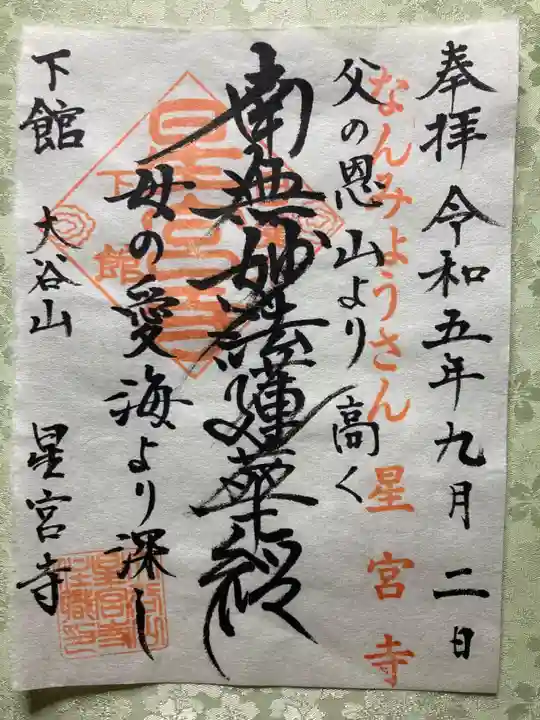 奉拝 令和五年九月二日
なんみようさん 星宮寺
父の恩 山より高く
南無妙法蓮華経
母の愛 海より深し
下館 大谷山 星宮寺
下館